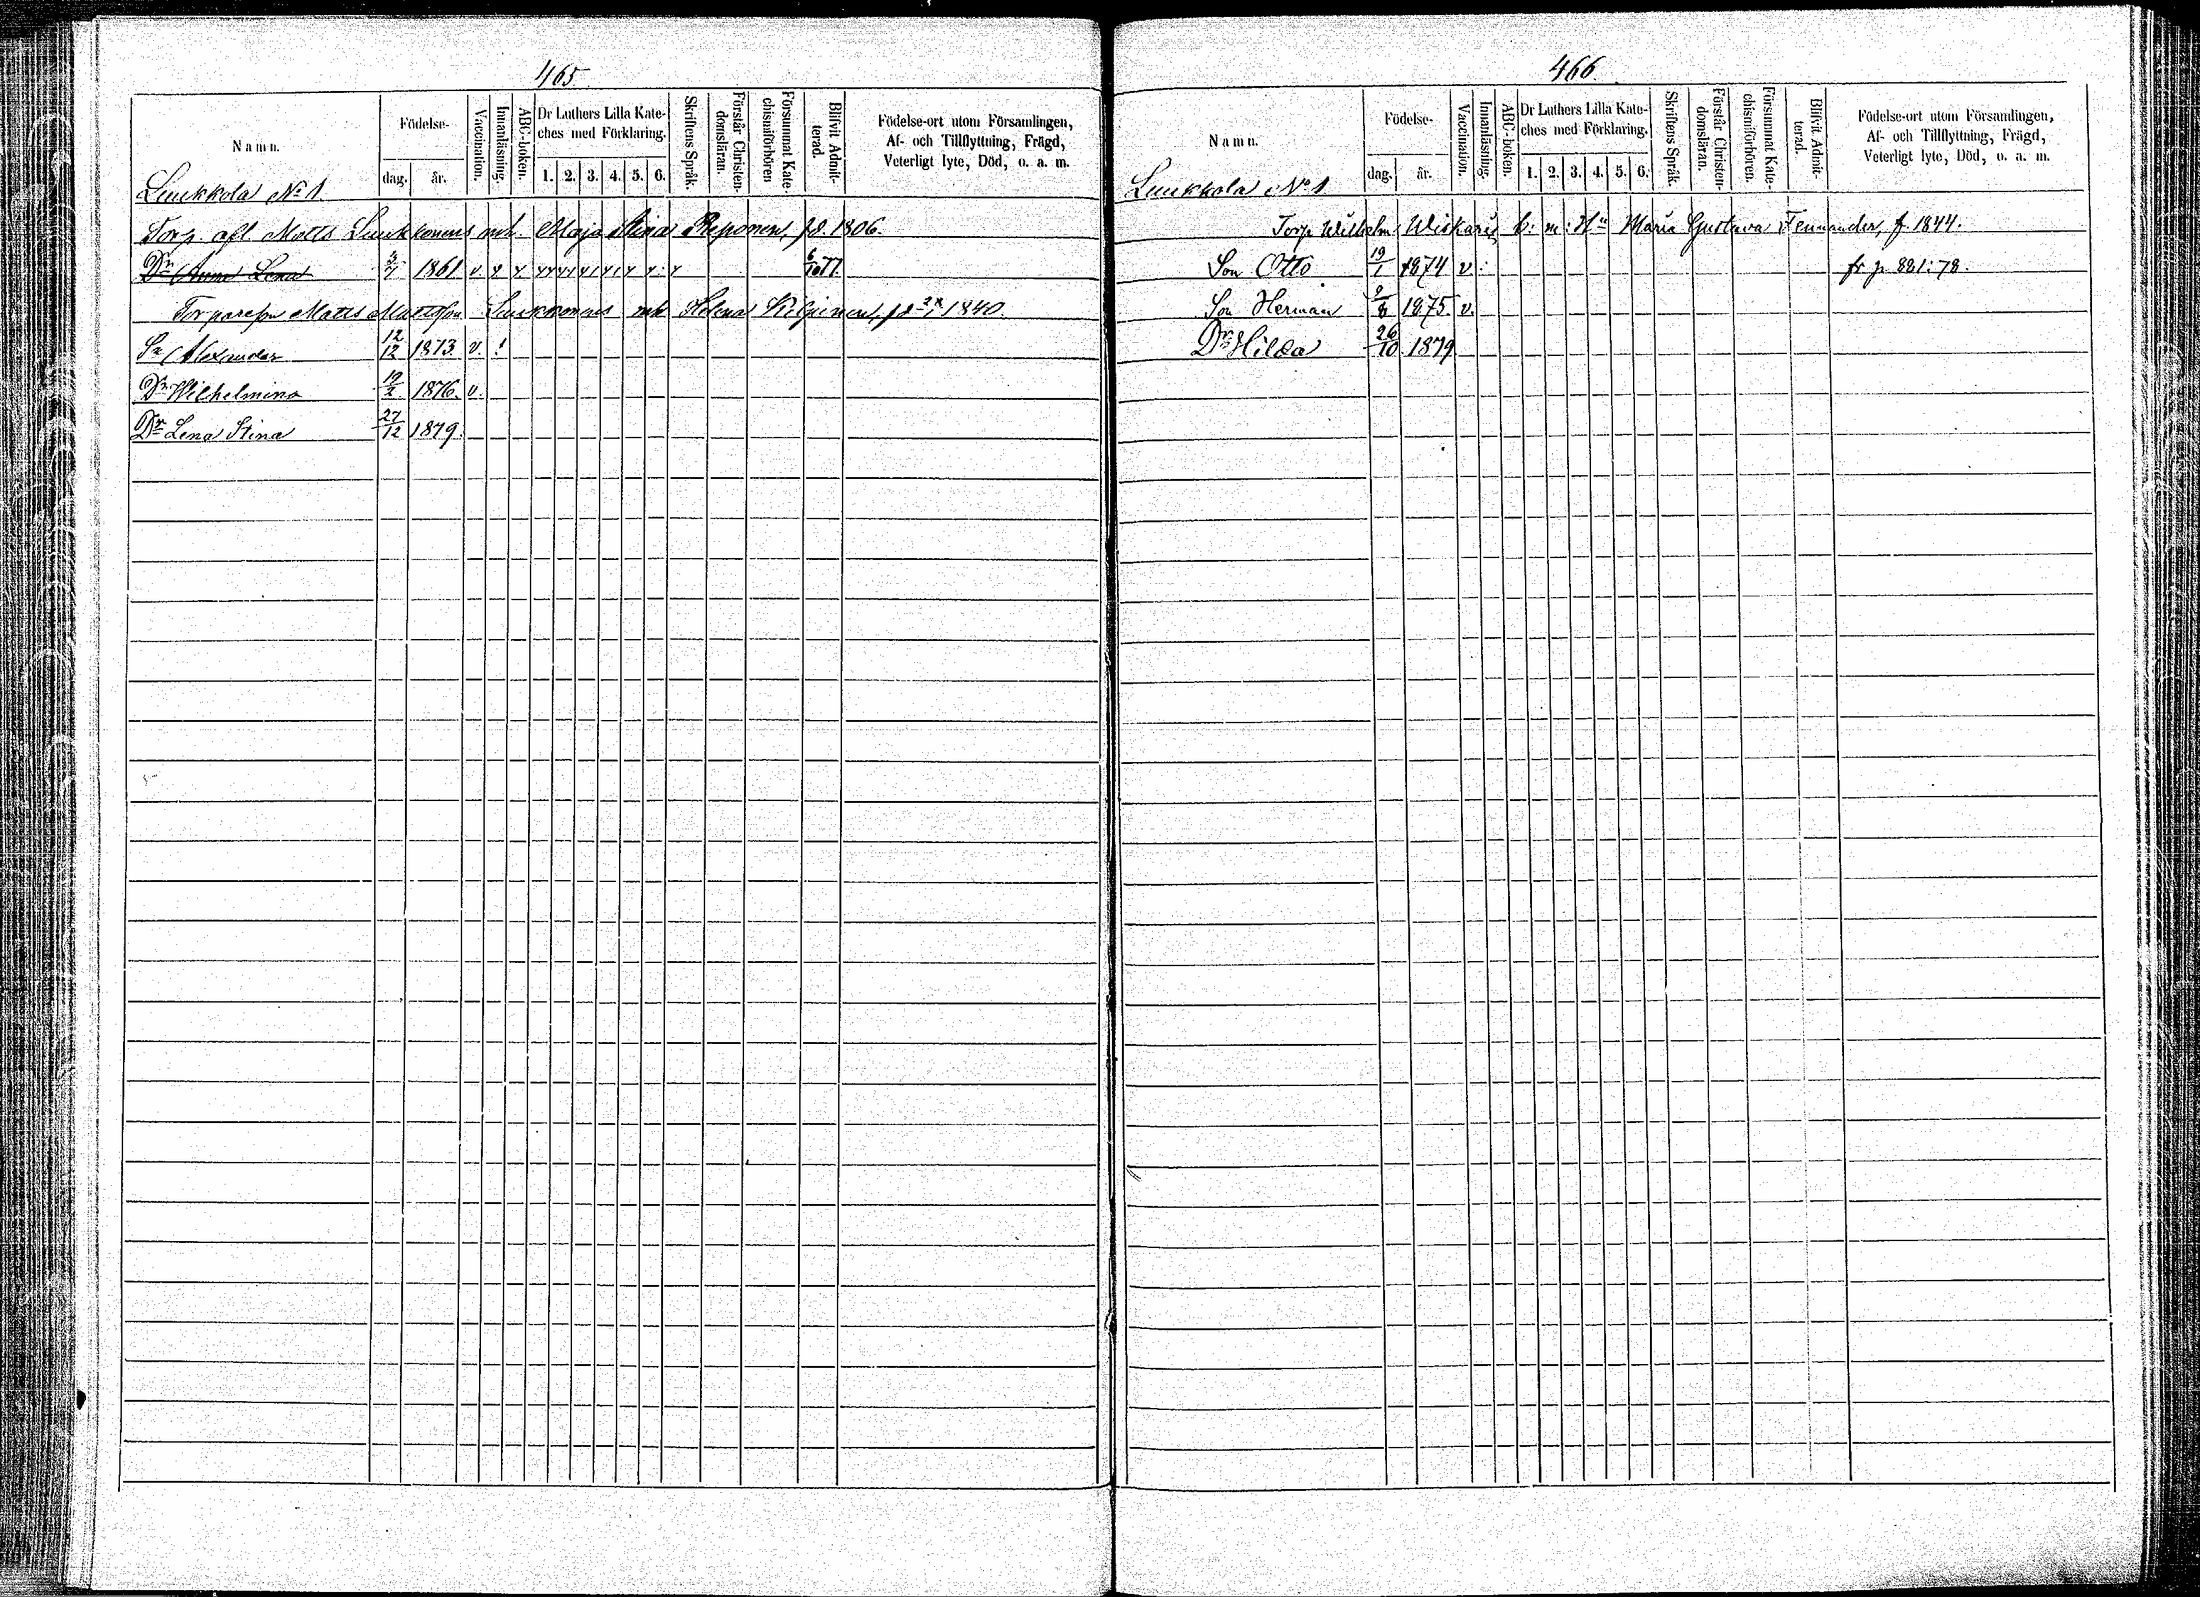 465.
Namn.
Födelse-
dag.
år.
Vaccination.
Innanläsning.
ABC-boken.
Dr Luthers Lilla Kate-
ches med Förklaring.
1. 2. 3. 4. 5. 6.
Skriftens Språk.
Förstår Christen-
domsläran.
Försummat Kate-
chismiförhören
Blifvit Admit-
terad.
Födelse-ort utom Församlingen,
Af- och Tillflyttning, Frägd,
Veterligt lyte, Död, o. a. m.
Luukkola No 1.
Torp. afl. Matts Luukkonens enk. Maja Stina Reponen, fd. 1806.
Dr Anna Lena 3/7 1861 v. 6/10 77.
Matts Mattsson Luukkonens Helena Kilpinen, 1840
Sn Alexander 12/12 1873 v. !
Dr Wilhelmina 19/2 1876. v.
Dr Lena Stina 27/12 1879.
466.
Namn.
Födelse-
dag.
år.
Vaccination.
Innanläsning.
ABC-boken.
Dr Luthers Lilla Kate-
ches med Förklaring.
1. 2. 3. 4. 5. 6.
Skriftens Språk.
Förstår Christen-
domsläran.
Försummat Kate-
chismiförhören.
Blifvit Admit-
terad.
Födelse-ort utom Församlingen,
Af- och Tillflyttning, Frägd,
Veterligt lyte, Död, o. a. m.
Luukkola No 1
Torp Wilhelm Wiskari b: m: Hu Maria Gustava Fennander, f. 1844.
Son Otto 19/1 1874 v: fr p. 881:78.
Son Herman 2/8 1875. v.
Dr Hilda 26/10 1879